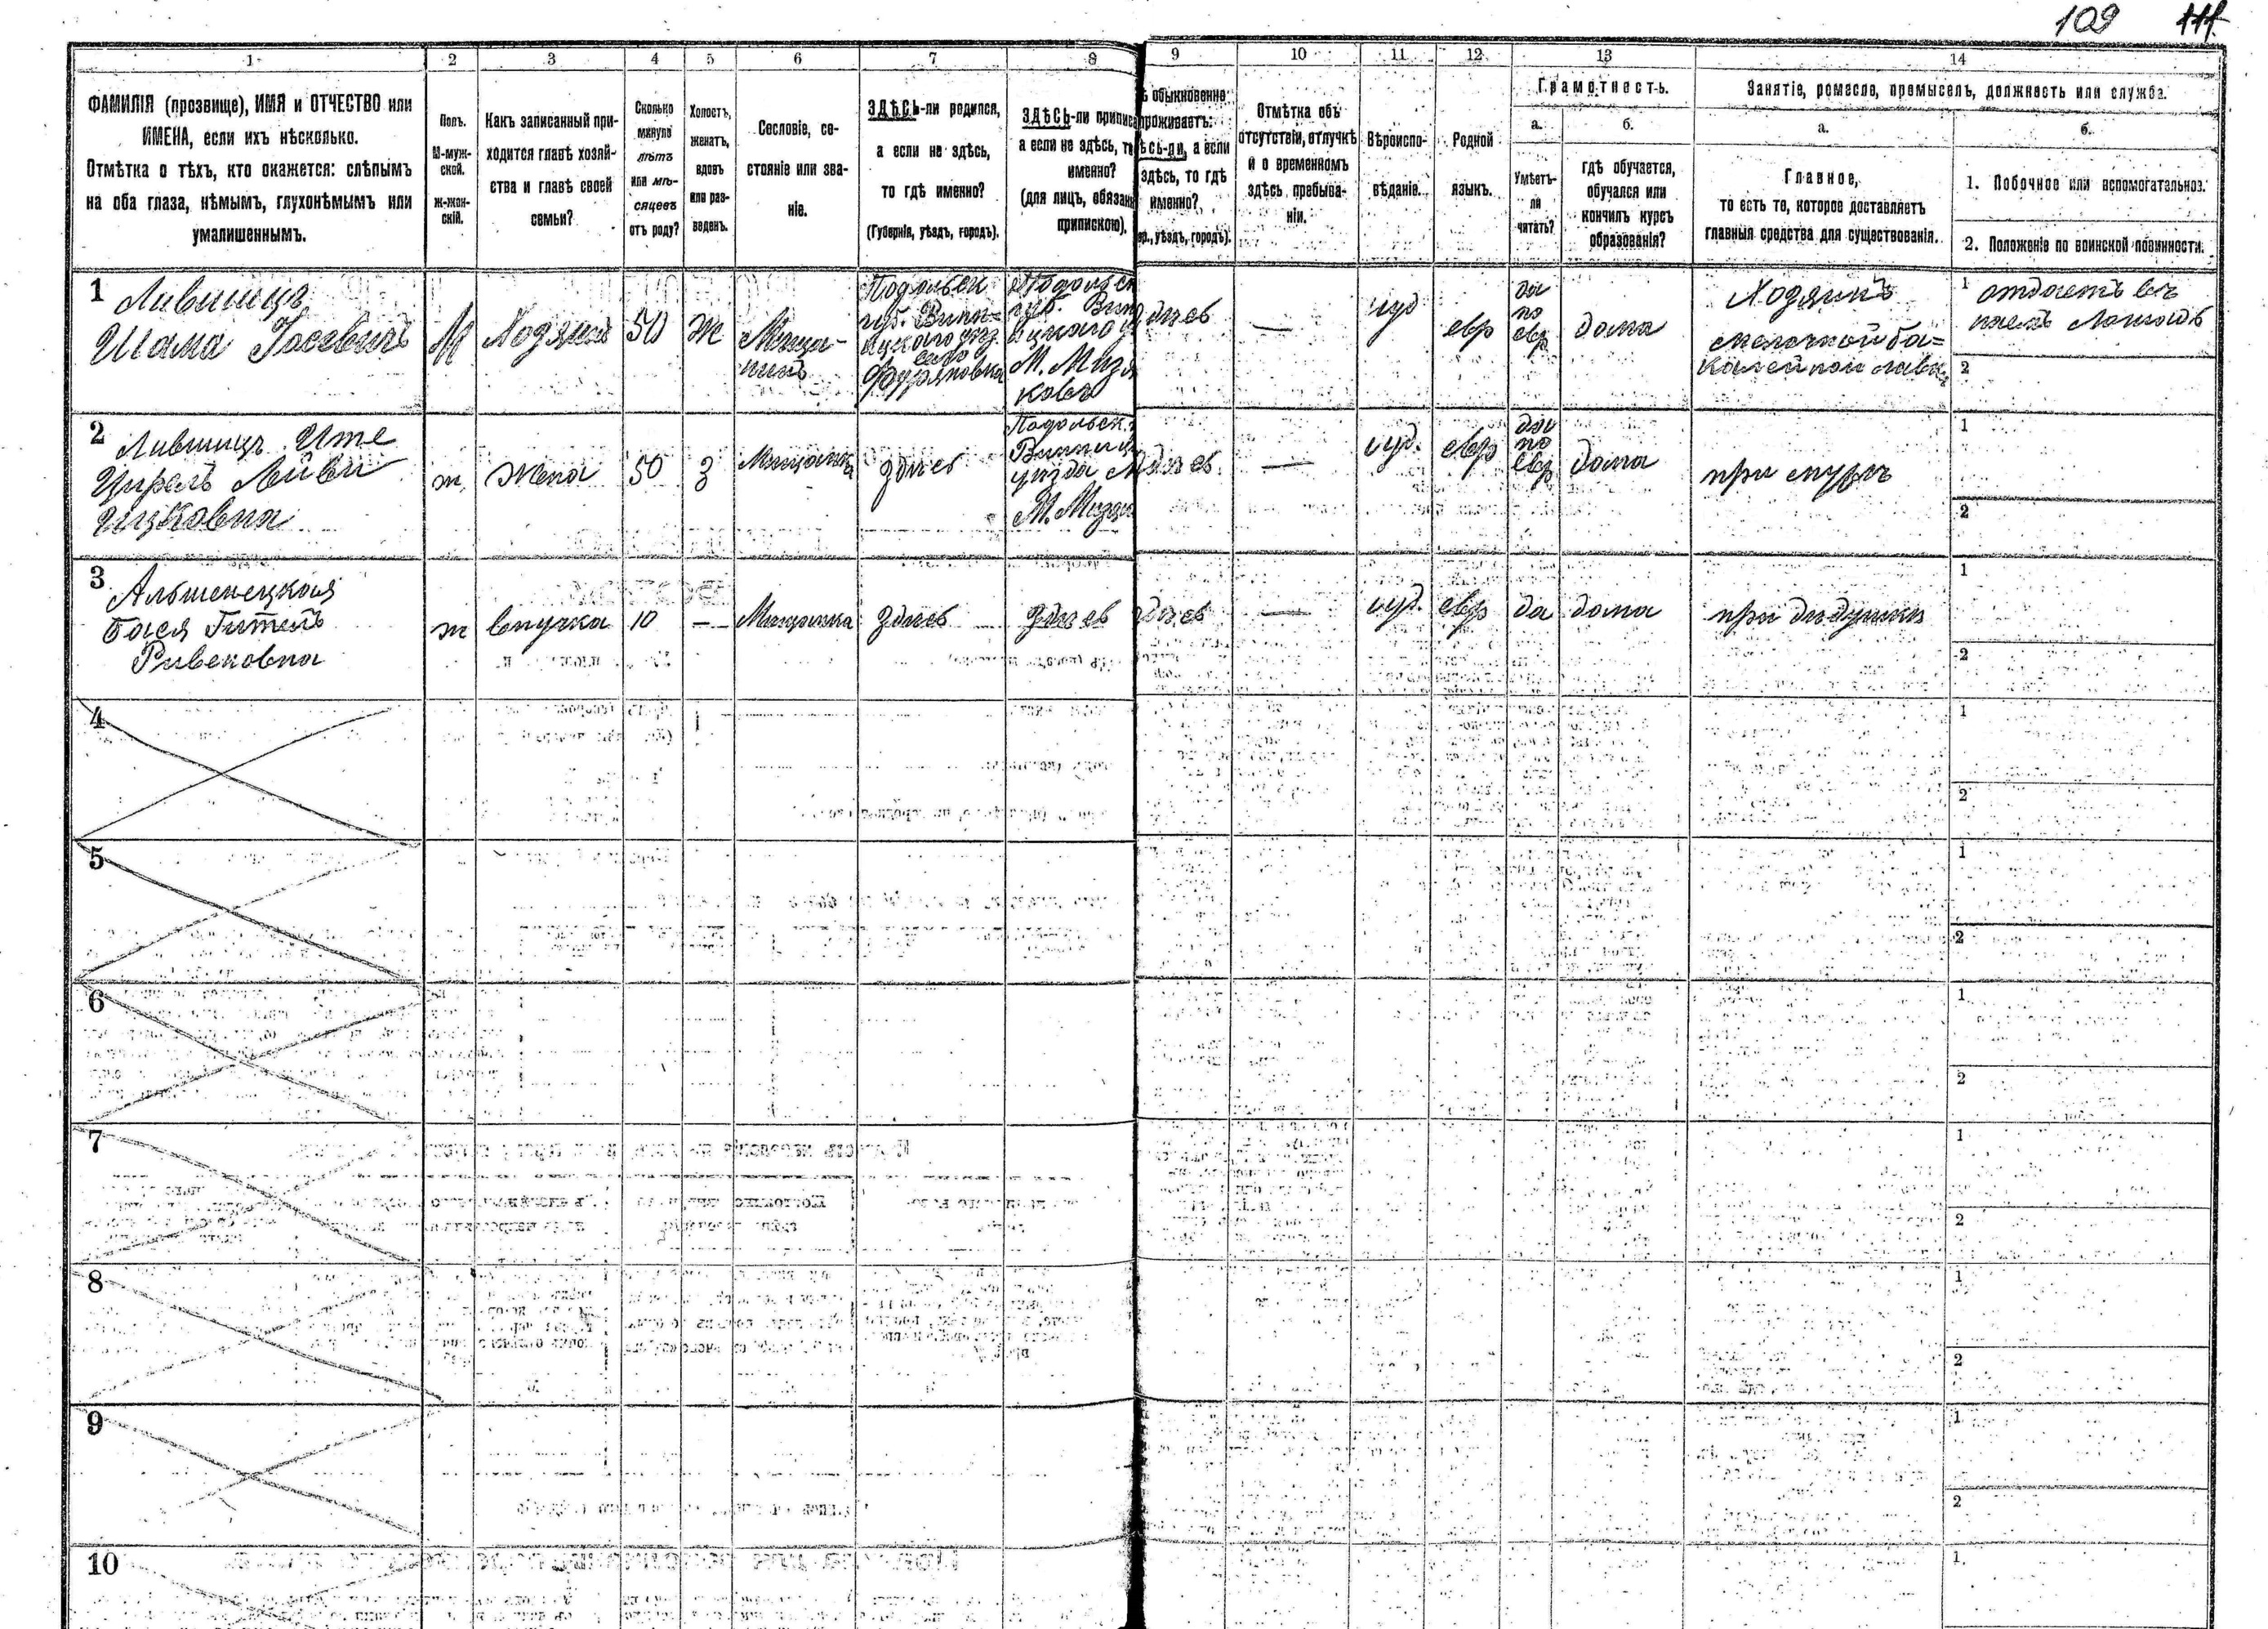 109 111
1 2 3 4 5 6 7 8 9 10 11 12 13 14
ФАМИЛІЯ (прозвище), ИМЯ и ОТЧЕСТВО или
ИМЕНА, если ихъ нѣсколько.
Отмѣтка о тѣхъ, кто окажется: слѣпымъ
на оба глаза, нѣмымъ, глухонѣмымъ или
умалишеннымъ.
Полъ.
М-муж-
ской.
ж-жен-
скій.
Какъ записанный при-
ходится главѣ хозяй-
ства и главѣ своей
семьи?
Сколько
минуло
лѣтъ
или мѣ-
сяцевъ
отъ роду?
Холостъ,
женатъ,
вдовъ
или раз-
веденъ.
Сословіе, со-
стояніе или зва-
ніе.
ЗДѢСЬ-ли родился,
а если не здѣсь,
то гдѣ именно?
(Губернія, уѣздъ, городъ).
ЗДѢСЬ-ли припис
а если не здѣсь, т
именно?
(для лицъ, обязан
припискою).
ѣ обыкновенно
проживаетъ:
ѣсь-ли, а если
здѣсь, то гдѣ
именно?
уѣздъ, городъ).
Отмѣтка объ
отсутствіи, отлучкѣ
и о временномъ
здѣсь пребыва-
ніи.
Вѣроиспо-
вѣданіе.
Родной
языкъ.
Грамотность.
а.
Умѣетъ-
ли
читать?
б.
гдѣ обучается,
обучался или
кончилъ курсъ
образованія?
Занятіе, ремесло, промыселъ, должность или служба.
а.
Главное,
то есть то, которое доставляетъ
главныя средства для существованія.
б.
1. Побочное или вспомогательное.
2. Положеніе по воинской повинности.
1
Лившицъ
Шама Іосевичъ
М
Хозяинъ
50
Ж
Мѣща-
нинъ
Подольск
губ. Винн-
ицкаго уѣз.
село
Подольск
губ. Вин
ицкаго у
М. Мизя
ковъ
здѣсь
—
іуд
евр
да
по
евр
дома
Хозяинъ
мелочной ба=
калейной лавки
1 отдаетъ въ
наемъ лошадь
2
2
Лившицъ Ите
Цирель Лейви
Ицковна
ж
Жена
50
З
Мѣщанка
здѣсь
Подольск.
Винниц
уѣзда
М. Мизя
здѣсь
—
іуд.
евр
да
по
евр
дома
при мужѣ
1
2
3
Альшенецкая
Бася Гитель
Ривековна
ж
внучка
10
—
Мѣщанка
здѣсь
здѣсь
здѣсь
—
іуд.
евр
да
дома
при дѣдушки
1
2
4
1
2
5
1
2
6
1
2
7
1
2
8
1
2
9
1
2
10
1